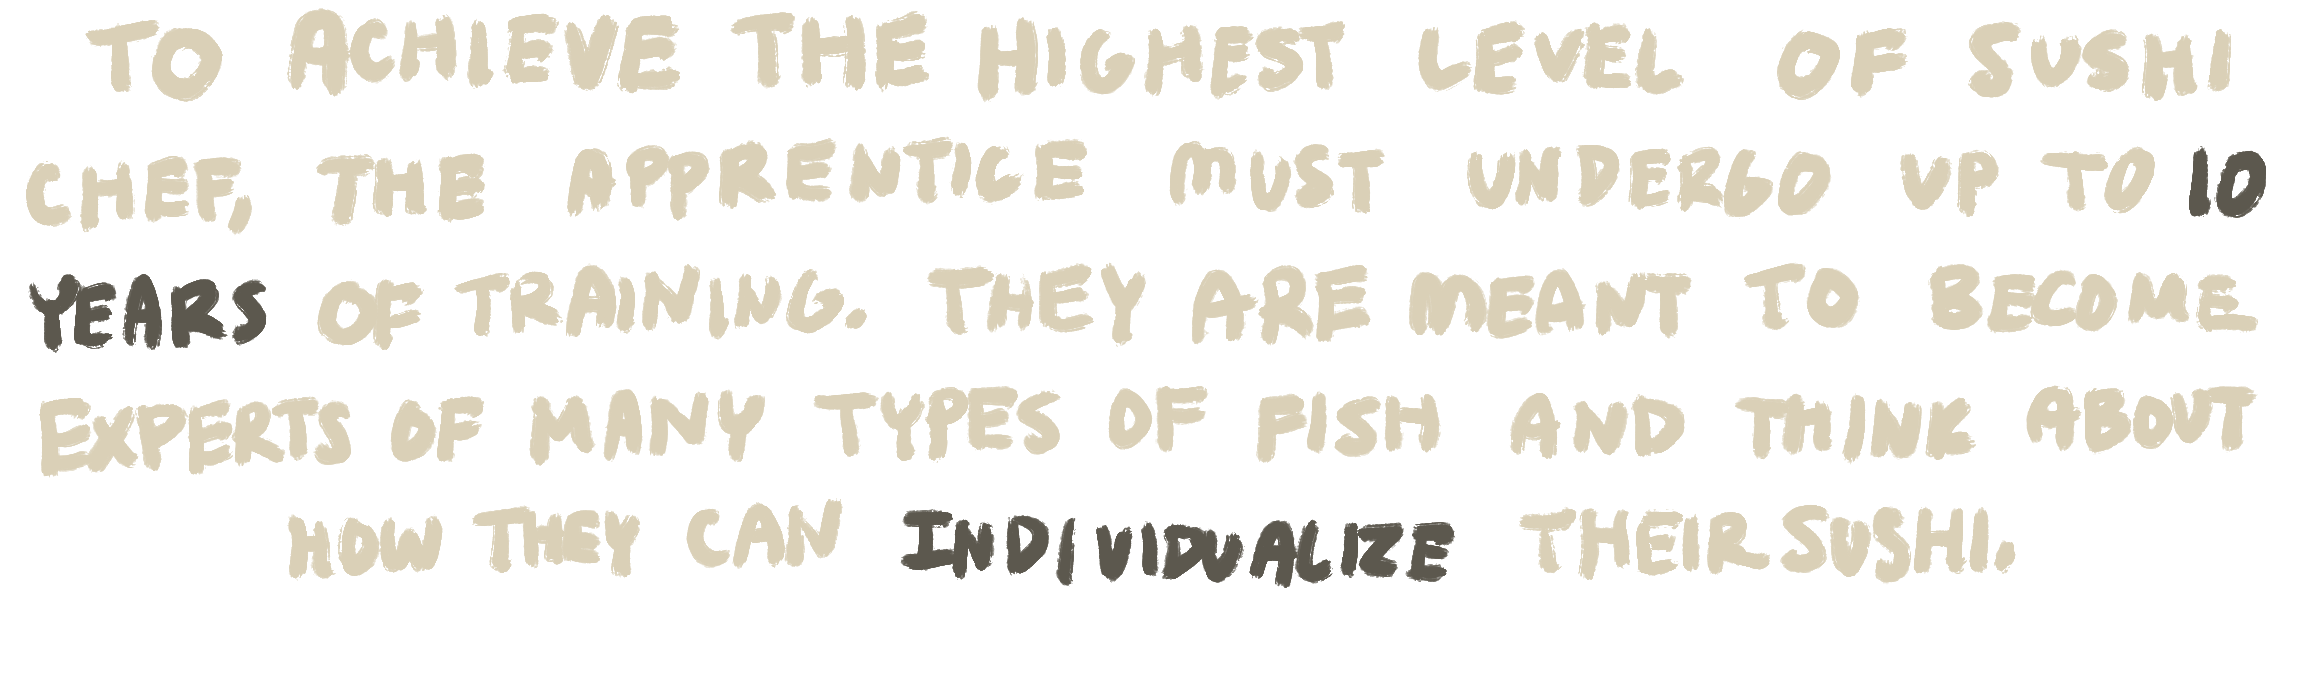 TO ACHIEVE THE HIGHEST LEVEL OF SUSHI
CHEF, THE APPRENTICE MUST UNDERGO UP TO 10
YEARS OF TRAINING. THEY ARE MEANT TO BECOME
EXPERTS OF MANY TYPES OF FISH AND THINK ABOUT
HOW THEY CAN INDIVIDUALIZE THEIR SUSHI.